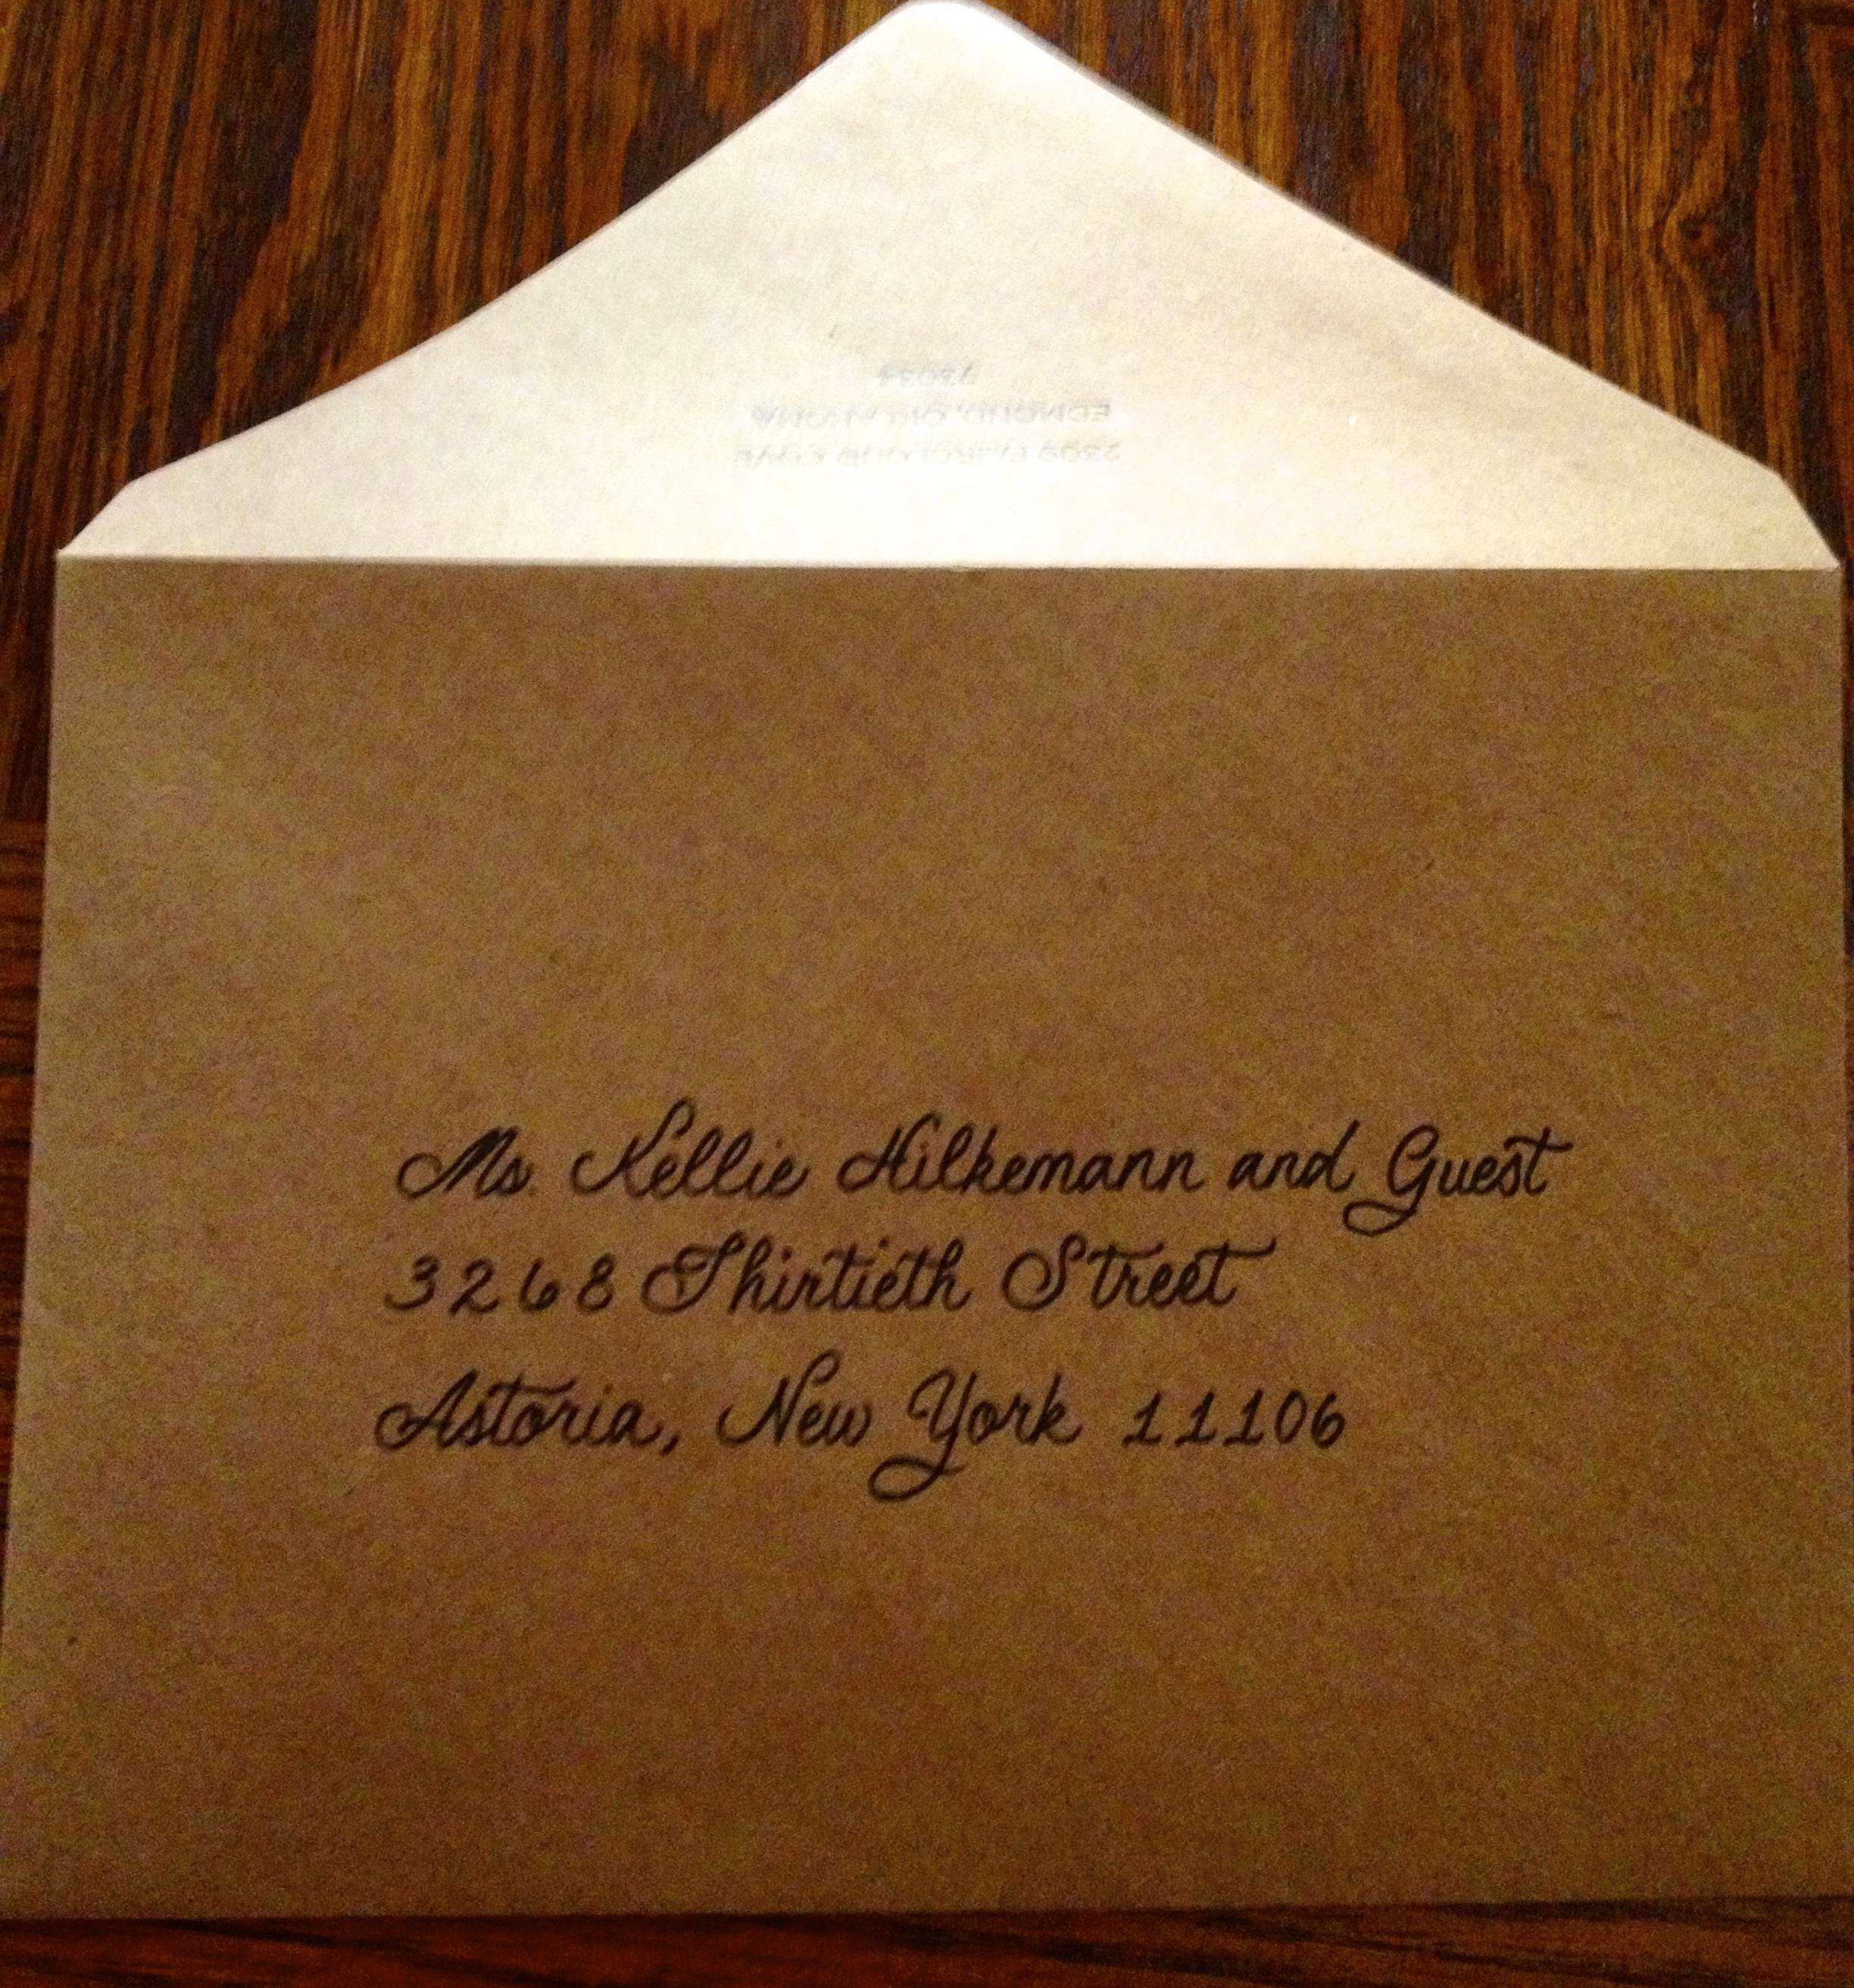 EDMOND, OKLAHOMA
Ms. Kellie Hilkemann and Guest
3268 Thirtieth Street
Astoria, New York 11106